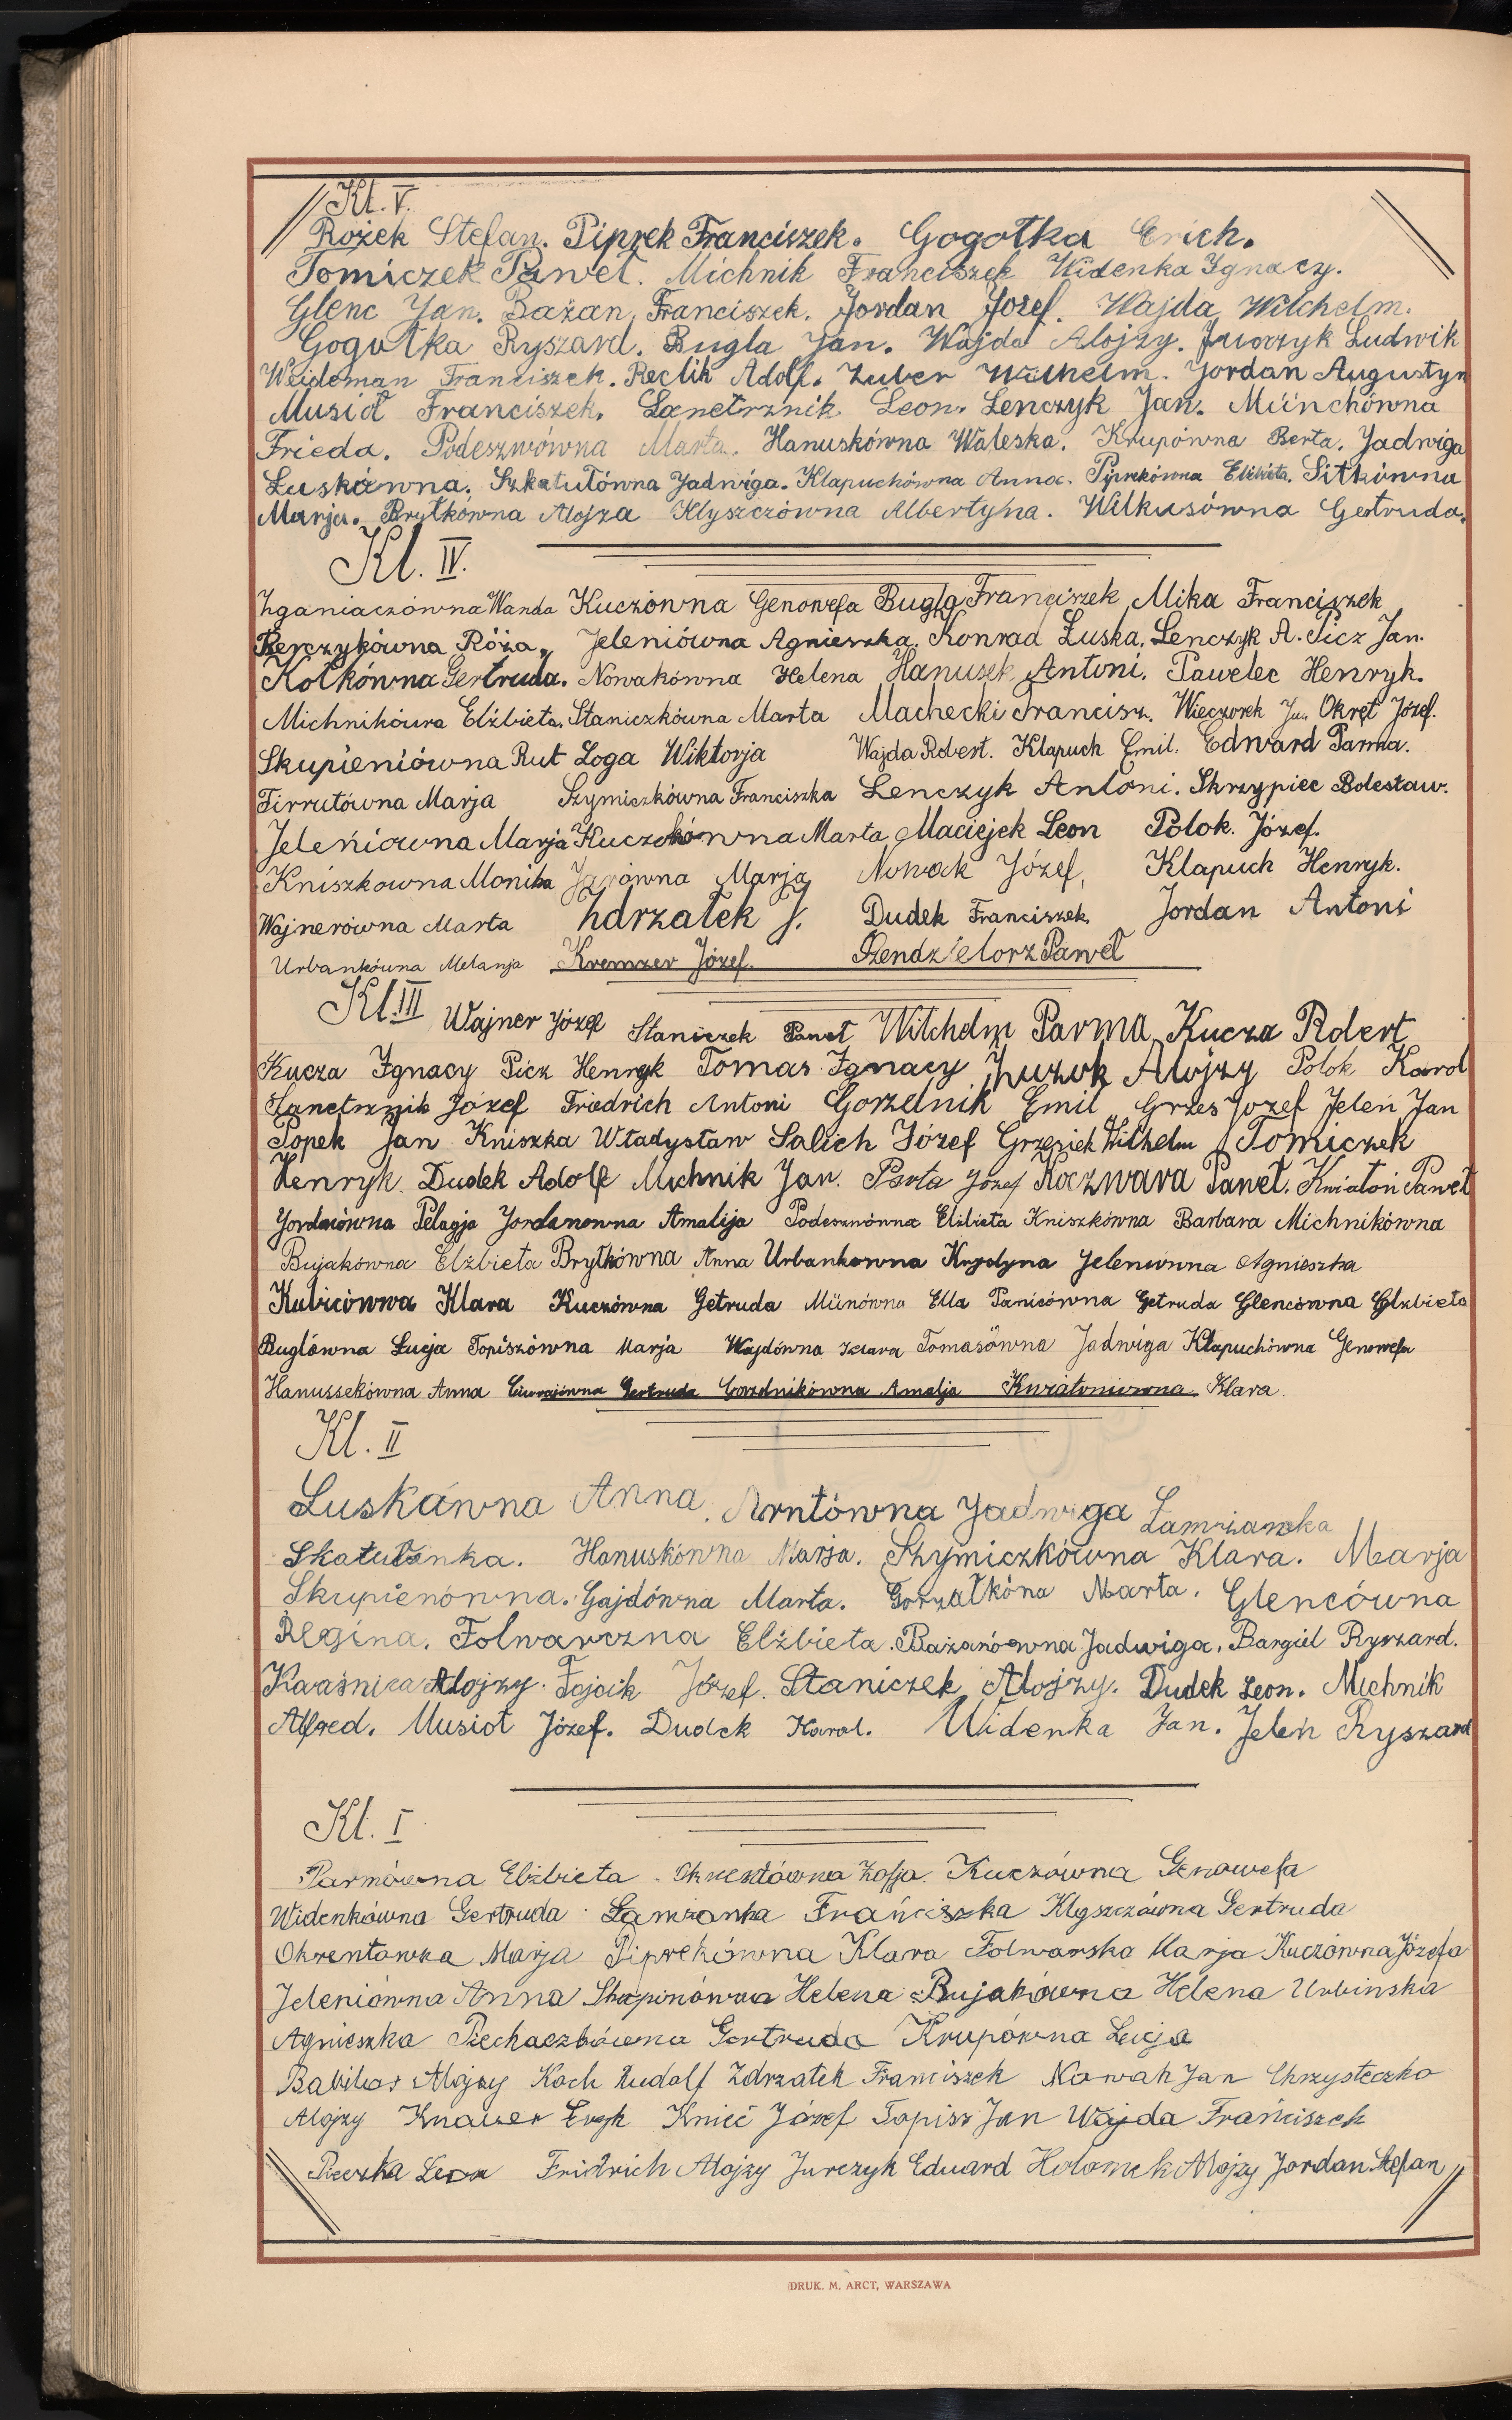 Kl. V.
Rożek Stefan. Piprek Franciszek. Gogotka Erich.
Tomiczek Paweł. Michnik Franciszek Widenka Ignacy.
Glenc Jan. Bażan, Franciszek. Jordan Józef. Wajda Wilchelm.
Gogułka Ryszard. Bugla Jan. Wajda Alojzy. Ludwik
Weideman Franciszek. Reclik Adolf. Zuber Wilhelm. Jordan Augustyn
Musioł Franciszek. Łanetrznik Leon. Lenczyk Jan. Münchówna
Frieda. Podeszwówna Marta. Hanuskówna Waleska. Krupówna Berta. Jadwiga
Łuskówna. Szkatułówna Jadwiga. Klapuchówna Anna. Piprekówna Elżbieta. Sitkówna
Marja. Bryłkówna Alojza Klyszczówna Albertyna. Wilkusówna Gertruda.
Kl. IV.
Zganiaczówna Wanda Kuczówna Genowefa Bugla Franciszek Mika Franciszek
Róża. Jeleniówna Agnieszka. Konrad Łuska. Lenczyk A. Picz Jan.
Kotkówna Gertruda. Nowakówna Helena Hanusek Antoni. Pawelec Henryk.
Michnikówna Elżbieta. Staniczkówna Marta Machecki Francisz. Wieczorek Jan Okręt Józef.
Skupieniówna Rut Loga Wiktorja Wajda Robert. Klapuch Emil. Edward Parma.
Tirrutówna Marja Szymiczkówna Franciszka Lenczyk Antoni. Skrzypiec Bolesław.
Jeleniówna Marja Marta Maciejek Leon Polok. Józef.
Kniszkowna Monika Marja Nowak Józef, Klapuch Henryk.
Wajnerówna Marta Zdrzałek J. Dudek Franciszek Jordan Antoni
Urbankówna Melanja Kremzer Józef. Szendzielorz Paweł
Kl. III Wajner Józef Staniczek Paweł Wilchelm Parma Kucza Robert
Kucza Ignacy Picz Henryk Tomas Ignacy Alojzy Polok Karol
Łanetrznik Józef Friedrich Antoni Gorzelnik Emil Grzes Jozef Jeleń Jan
Popek Jan Kniszka Władysław Salich Józef Grzesiek Wilhelm Tomiczek
Henryk. Dudek Adolf Michnik Jan. Józef Koczwara Paweł. Kwiatoń Paweł
Pelagja Jordanowna Amalija Podeszwówna Elżbieta Kniszkówna Barbara Michnikówna
Bujakówna Elżbieta Bryłkówna Anna Urbankowna Jeleniówna Agnieszka
Kubicówwa Klara Kuczówna Getruda Münówna Ella Panicówna Getruda Glencówna Elżbieta
Buglówna Łucja Topiszówna Marja Wajdówna Klara Tomasówna Jadwiga Klapuchówna Genowefa
Hanussekówna Anna Gertruda Gorzelnikówna Amalja Kwiatoniowna Klara.
Kl. II
Luskówna Anna. Arntówna Jadwiga
Skatulanka. Hanuskówna Marja. Szymiczkówna Klara. Marja
Skupienówna. Gajdówna Marta. Gorzałkóna Marta. Glencówna
Regina. Folwarczna Elżbieta. Bażanówna Jadwiga. Bargiel Ryszard.
Kaaśnica Alojzy. Fojcik Józef. Staniczek Alojzy. Dudek Leon. Michnik
Alfred. Musioł Józef. Dudek Karol. Widenka Jan. Jeleń Ryszard
Kl. I
Parmówna Elżbieta. Zofja. Kuczówna Genowefa
Widenkówna Gertruda Lamżanka Franciszka Klyszczówna Gertruda
Okrentówna Marja Piprekówna Klara Folwarska Marja Kuczówna Józefa
Jeleniówna Anna Skupinówna Helena Bujakówna Helena Urbinska
Agnieszka Piechaczkówna Gertruda Krupówna Łucja
Alojzy Koch Rudolf Zdrzałek Franciszek Nowak Jan Chrzysteczko
Alojzy Knauer Eryk Knieć Józef Topisz Jan Wajda Franciszek
Pieczka Leon Fridrich Alojzy Jurczyk Eduard Holomek Alojzy Jordan Stefan
DRUK. M. ARCT, WARSZAWA